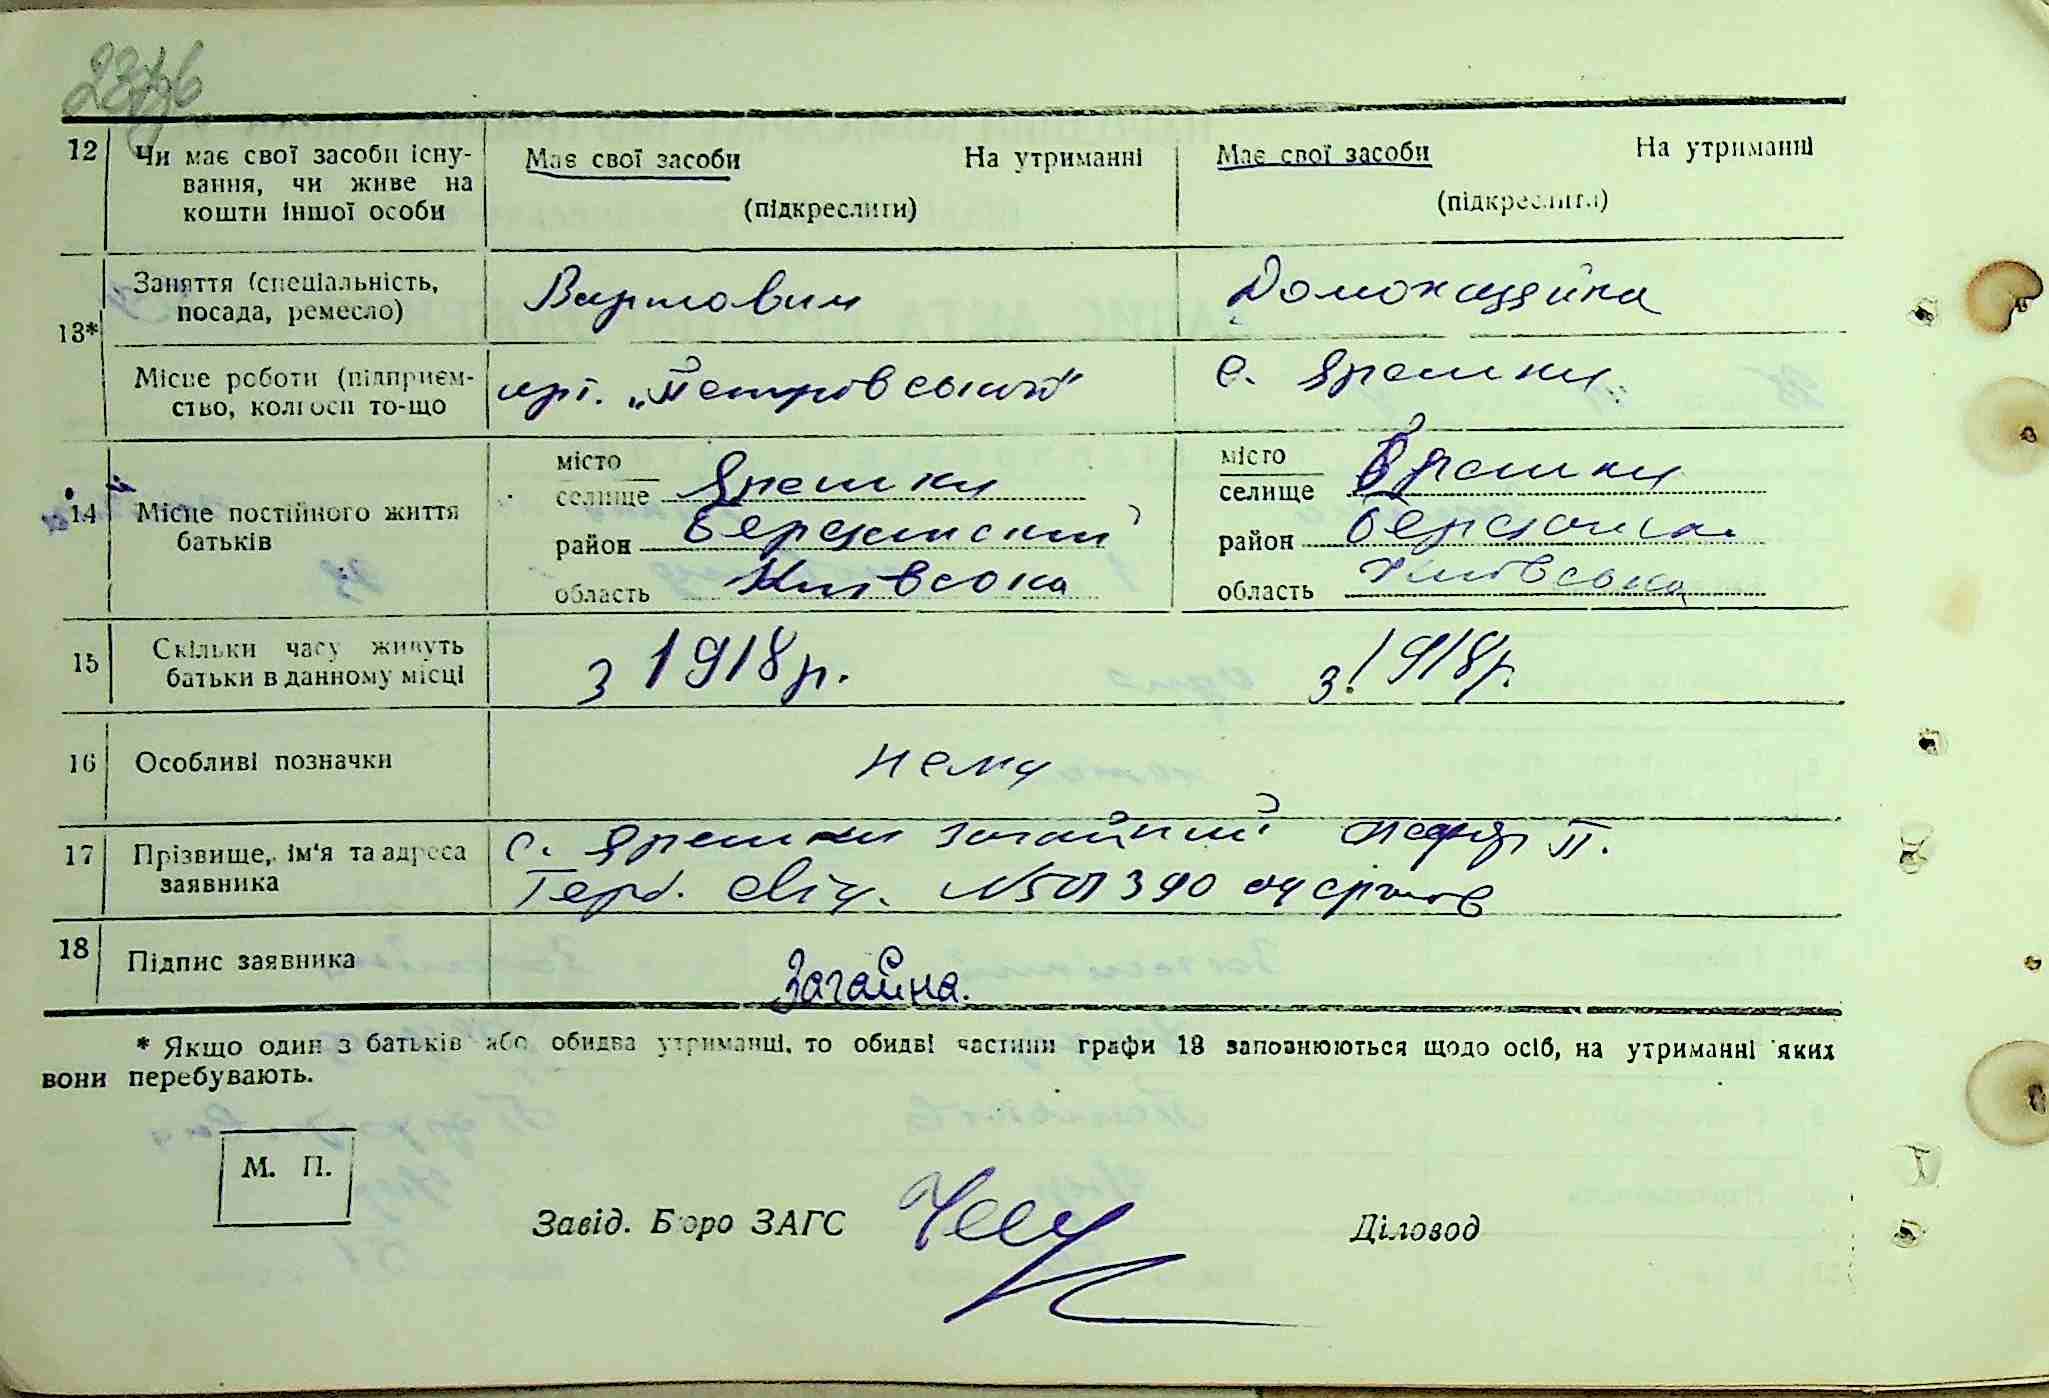 12 Чи має свої засоби існу-
вання, чи живе на
кошти іншої особи
Має свої засоби На утриманні
(підкреслити)
Має свої засоби На утриманні
(підкреслити)
13*
Заняття (спеціальність,
посада, ремесло)
Вартовим
Домохазяйка
Місце роботи (підприєм-
ство, колгосп то-що
арт. „Петровського"
с. Ярешки
14 Місце постійного життя
батьків
місто
селище Ярешки
район
область Київська
місто
селище Ярешки
район
область Київська
15 Скільки часу живуть
батьки в данному місці
з 1918 р.
з 1918 р.
16 Особливі позначки
нема
17 Прізвище, ім'я та адреса
заявника
с. Ярешки Загайний П.
Герб. свід. №
18 Підпис заявника
Загайна.
* Якщо один з батьків або обидва утриманці, то обидві частини графи 13 заповнюються щодо осіб, на утриманні яких
вони перебувають.
М. П.
Завід. Бюро ЗАГС
Діловод